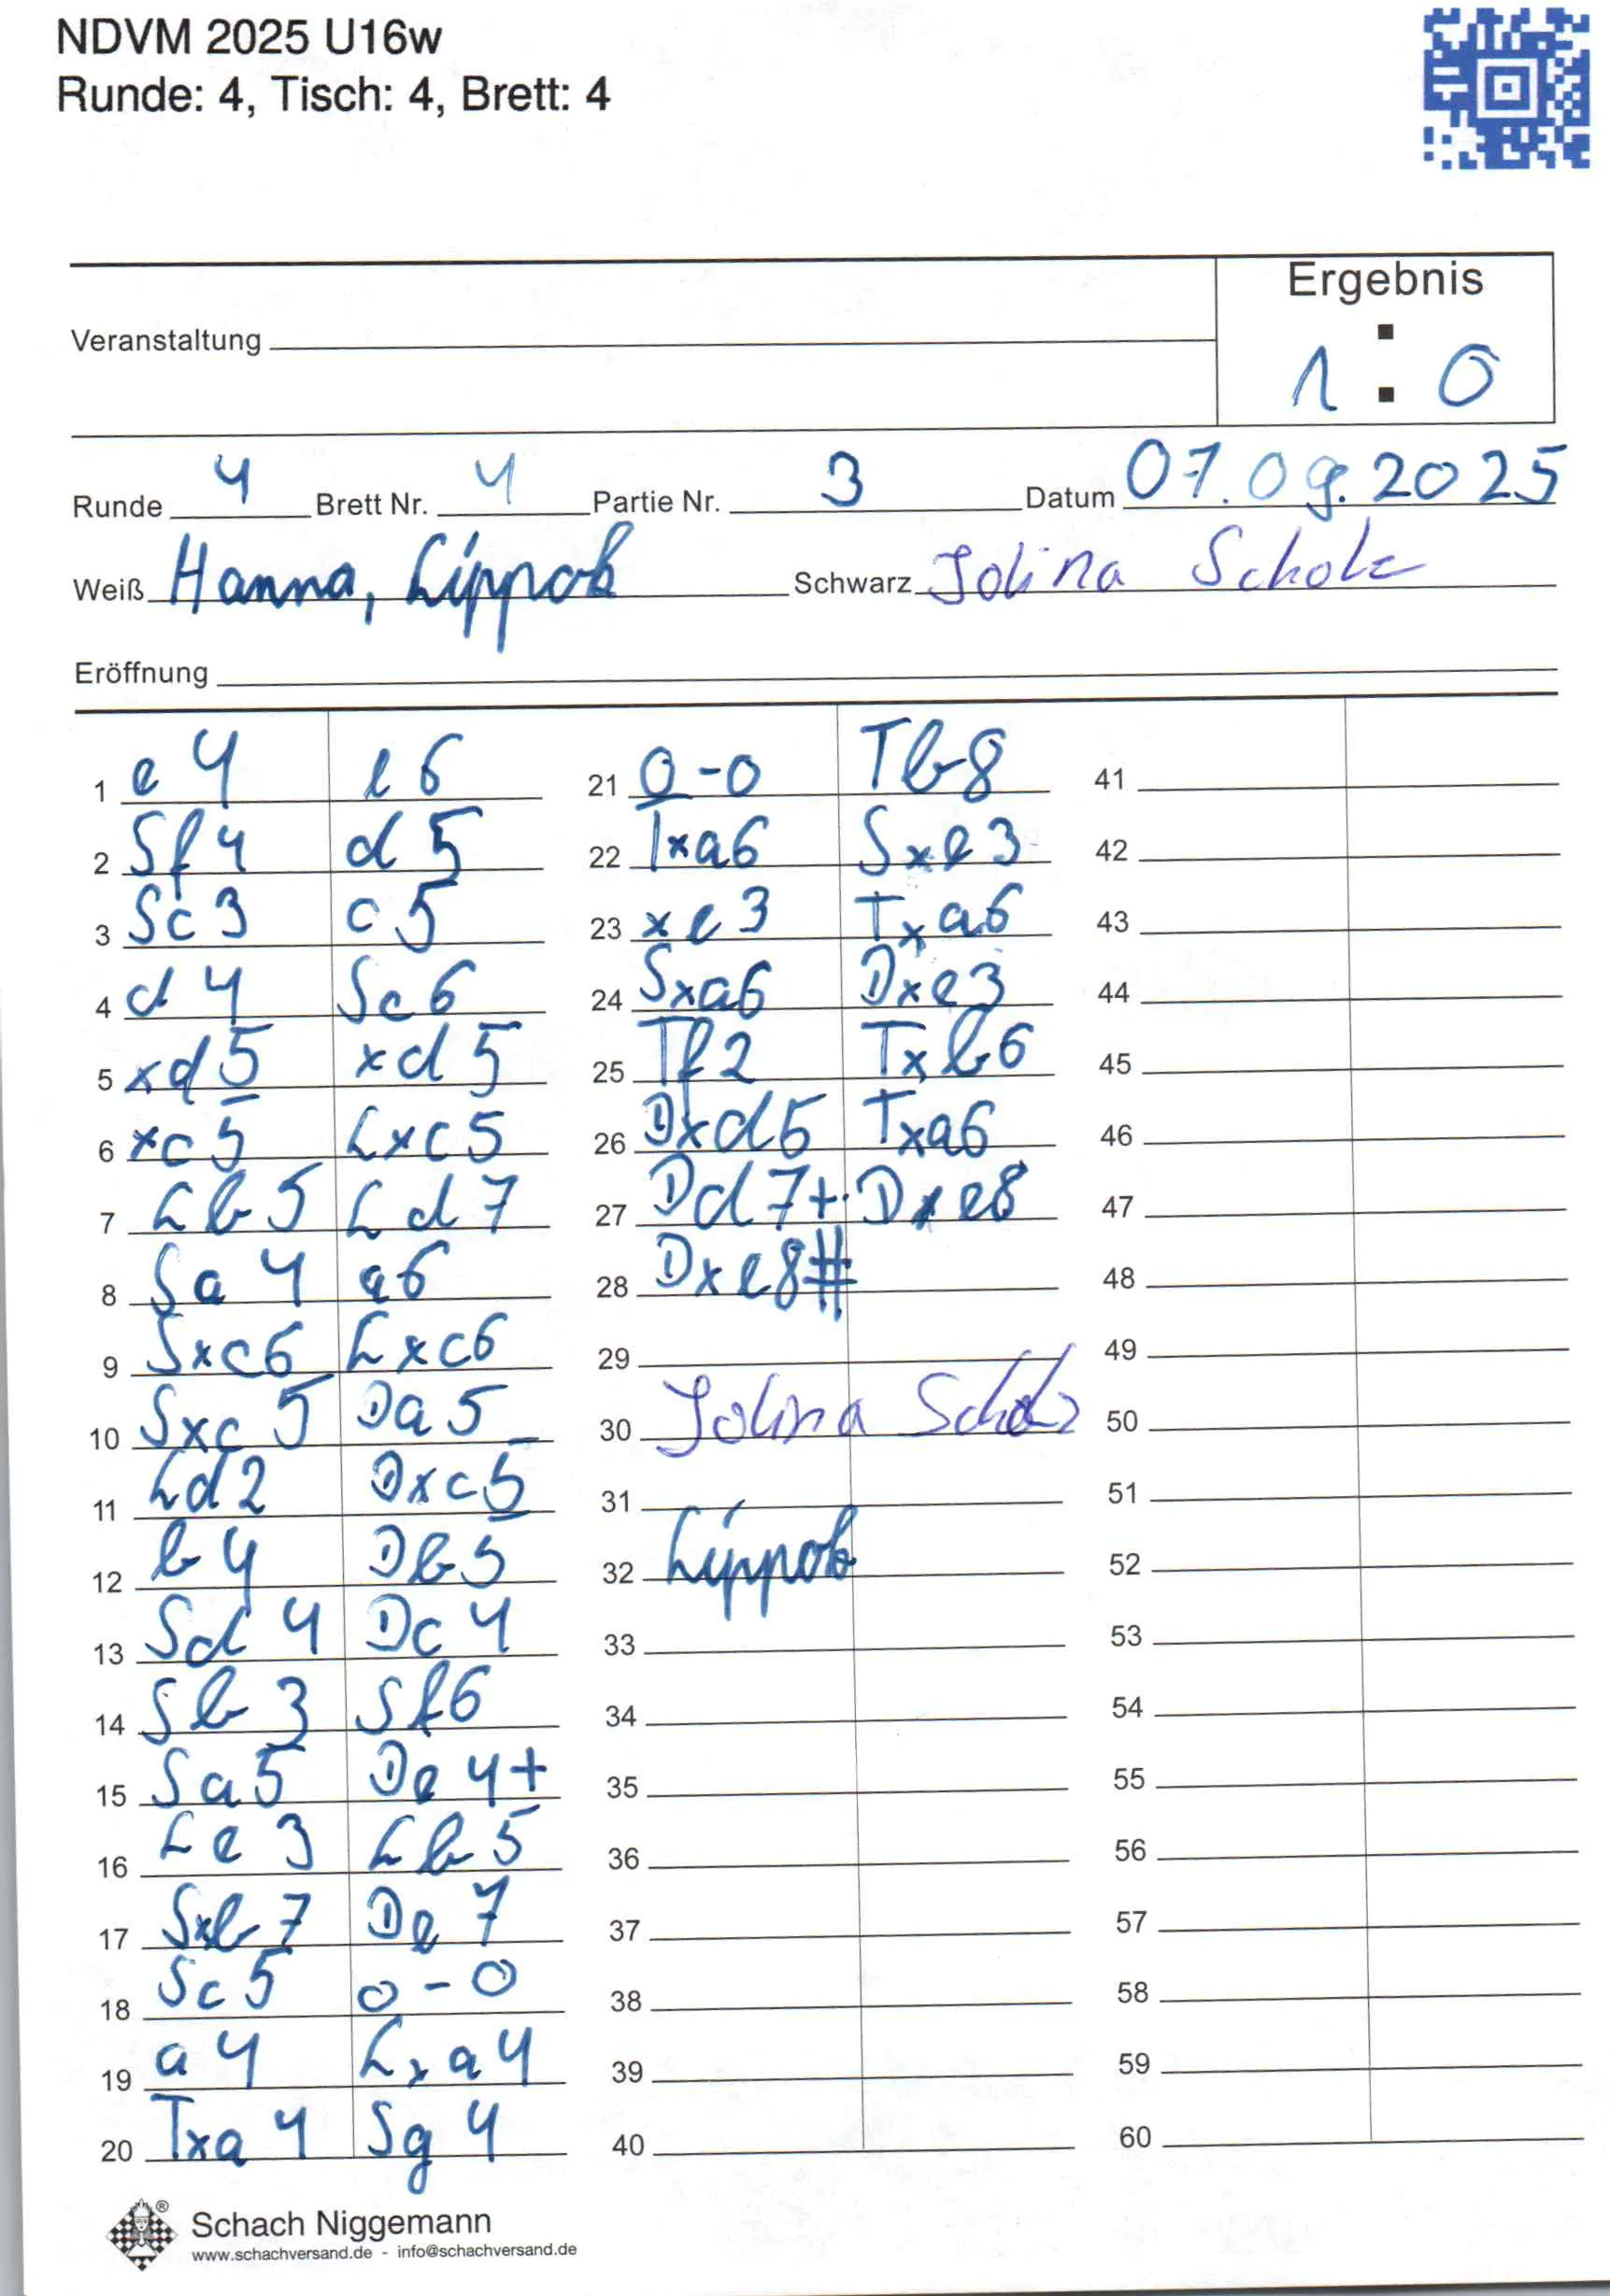 NDVM 2025 U16w
Runde: 4, Tisch: 4, Brett: 4
Ergebnis
Veranstaltung
1 : 0
Runde 4 Brett Nr. 4 Partie Nr. 3 Datum 07.09.2025
Weiß Hanna, Lippok Schwarz Jolina Scholz
Eröffnung
1 e4 e6
2 Sf4 d5
3 Sc3 c5
4 d4 Sc6
5 xd5 xd5
6 xc5 Lxc5
7 Lb5 Ld7
8 Sa4 a6
9 Sxc6 Lxc6
10 Sxc5 Da5
11 Ld2 Dxc5
12 b4 Db5
13 Sd4 Dc4
14 Sb3 Sf6
15 Sa5 De4+
16 Le3 Lb5
17 Sxb7 De7
18 Sc5 0-0
19 a4 Lxa4
20 Txa4 Sg4
21 0-0 Tb8
22 Txa6 Sxe3
23 xe3 Txa6
24 Sxa6 Dxe3
25 Tf2 Txb6
26 Dxd5 Txa6
27 Dd7+ Dxe8
28 Dxe8#
29
30 Jolina Scholz
31
32 Lippok
33
34
35
36
37
38
39
40
41
42
43
44
45
46
47
48
49
50
51
52
53
54
55
56
57
58
59
60
Schach Niggemann
www.schachversand.de - info@schachversand.de